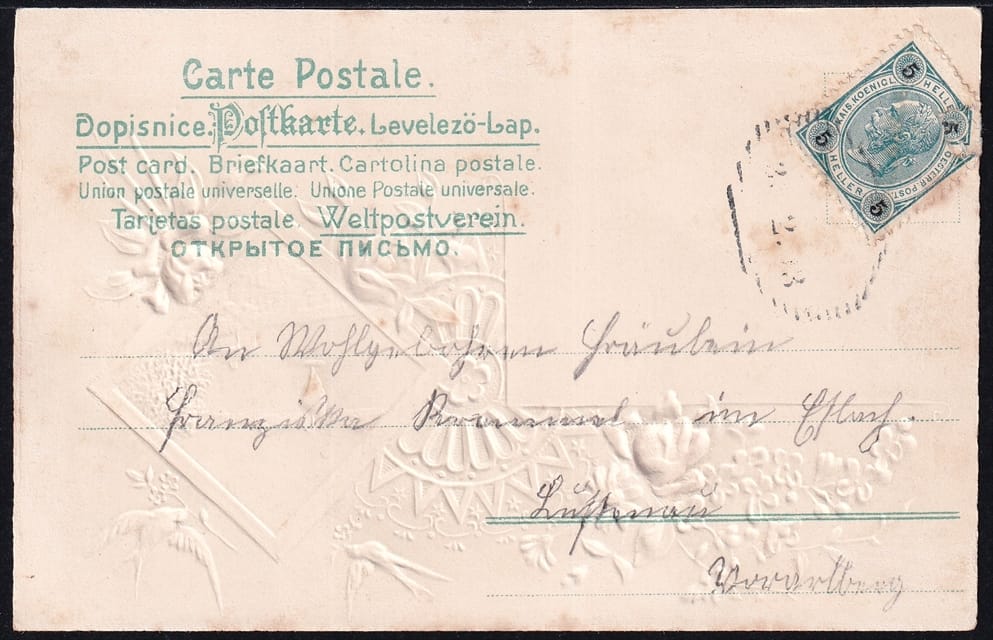 Carte Postale.
Dopisnice. Postkarte. Levelezö-Lap.
Post card. Briefkaart. Cartolina postale.
Union postale universelle. Unione Postale universale.
Tarjetas postale. Weltpostverein.
ОТКРЫТОЕ ПИСЬМО.
5 5 5 5
KAIS. KOENIGL. OESTERR. POST.
HELLER HELLER
An Wohlgebohren Fräulein
Franziska im
Lustenau
Vorarlberg